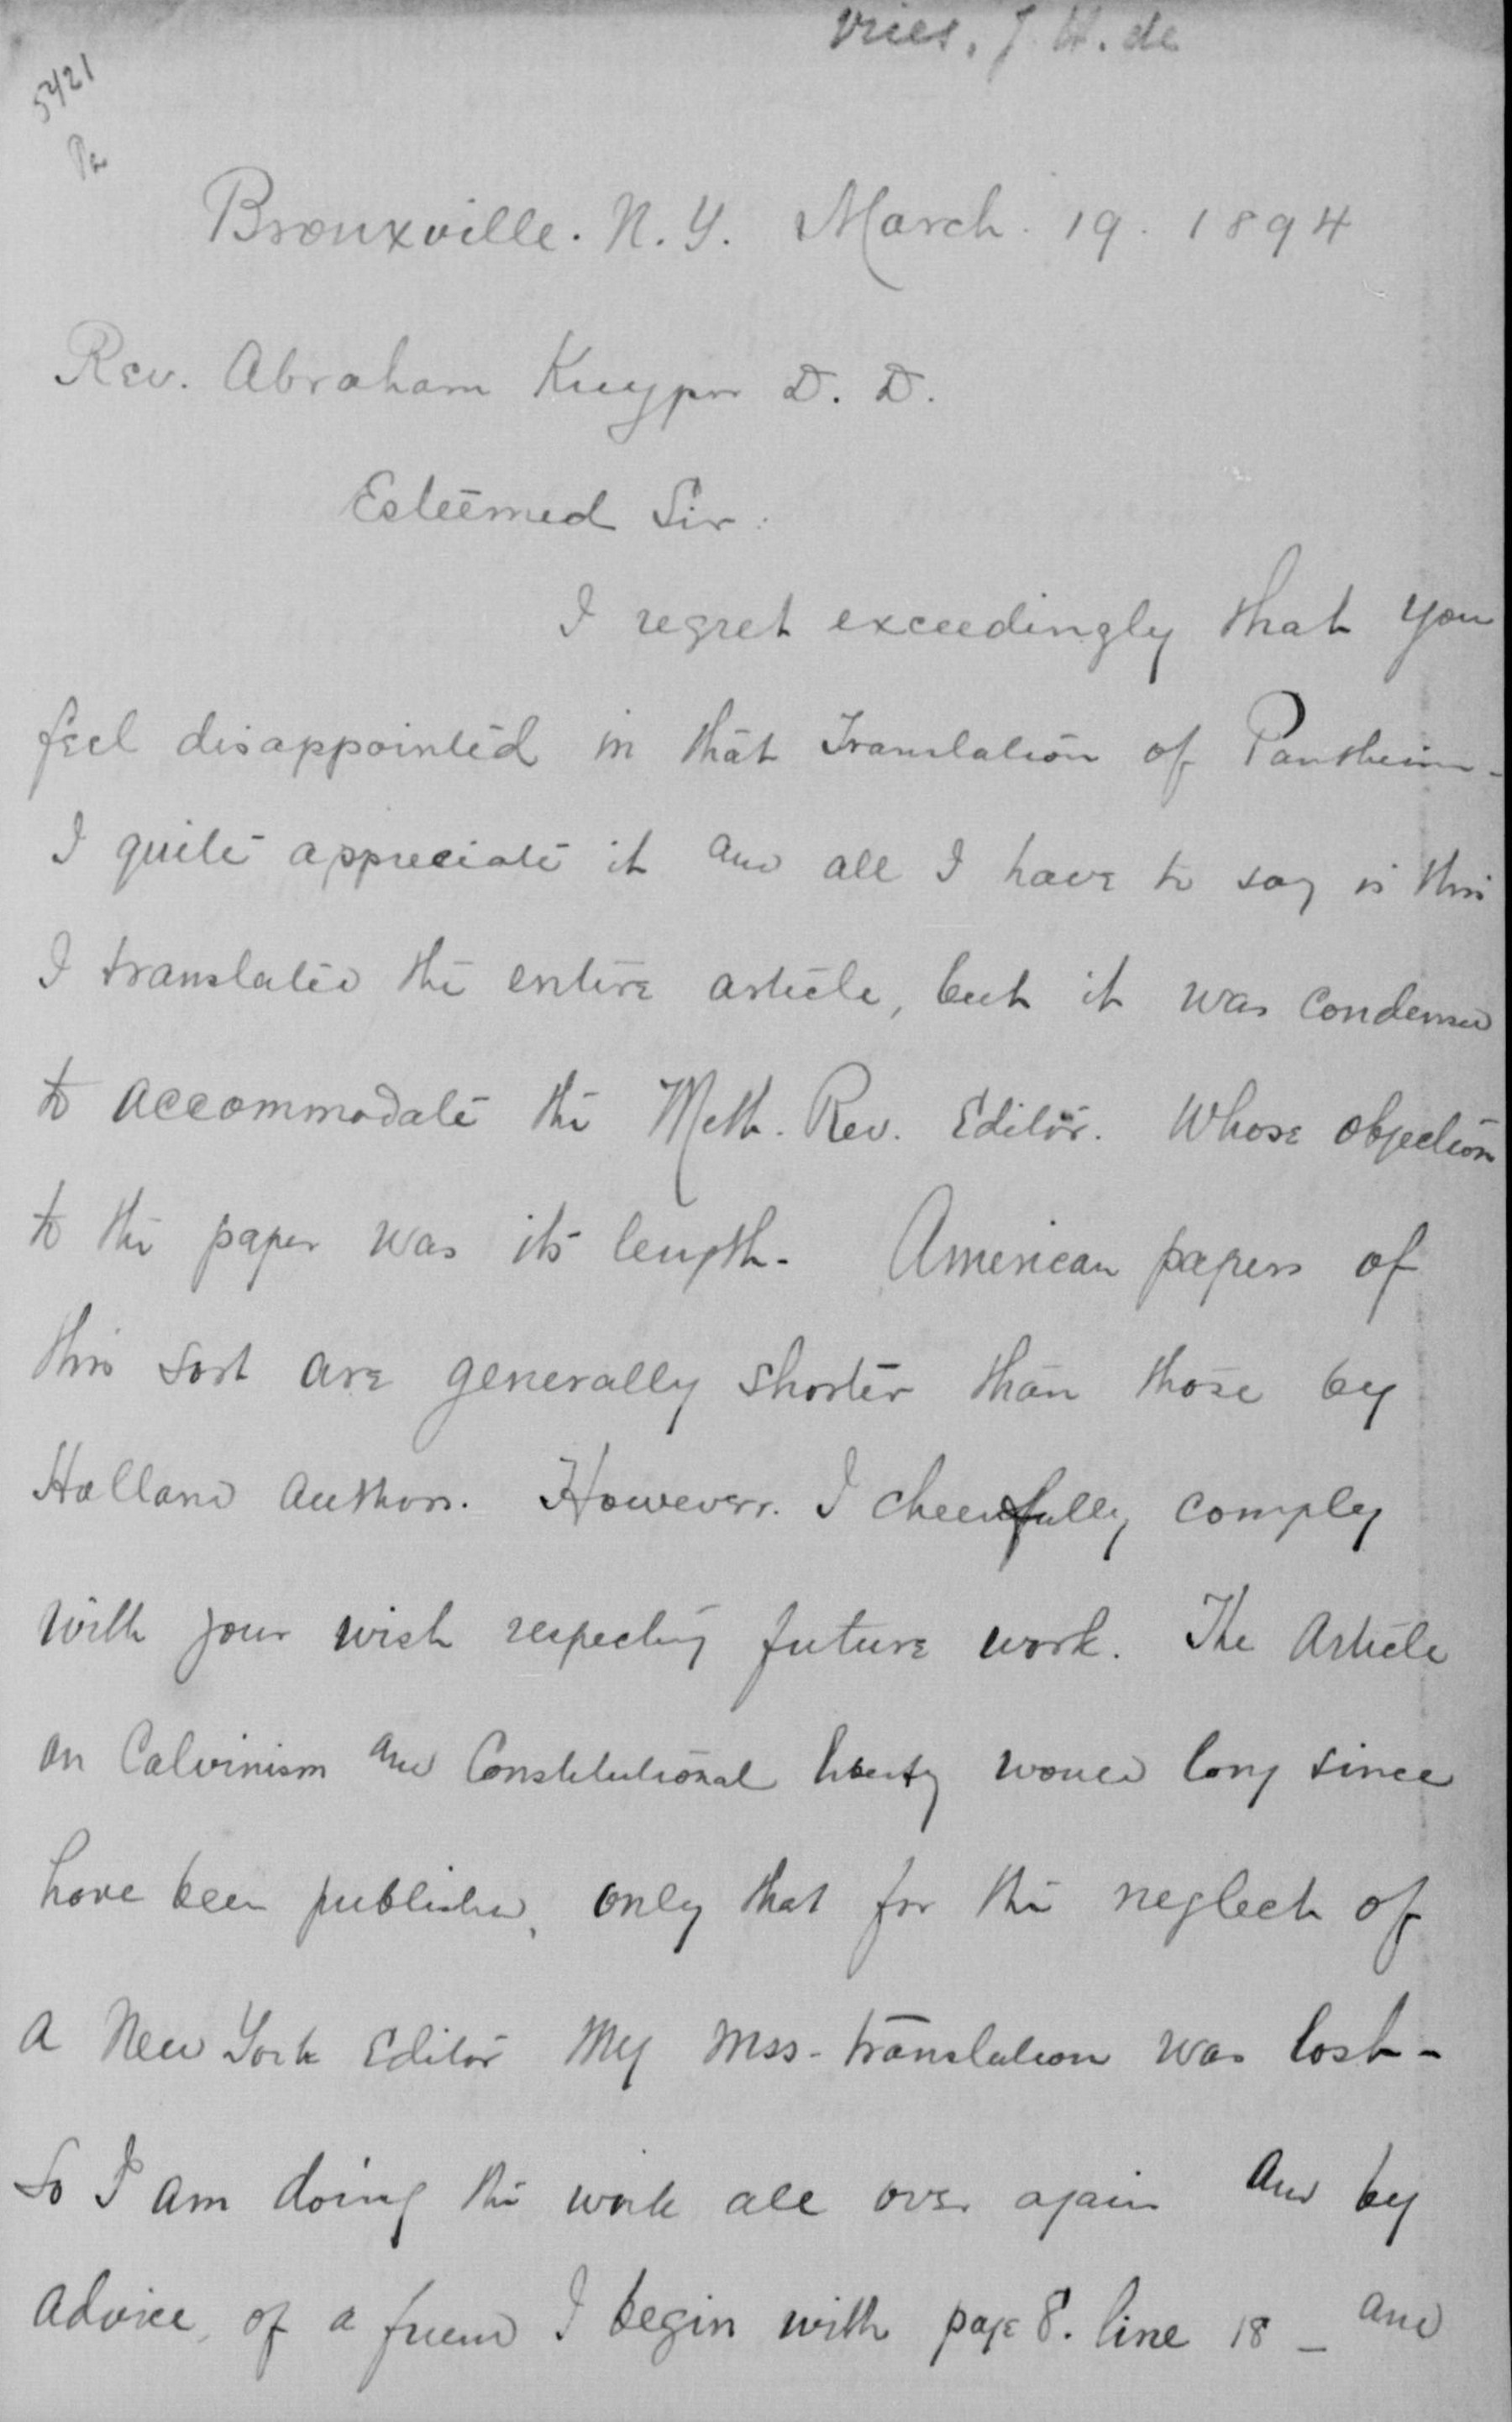 Vries, J. H. de
5421
Bronxville. N. Y. March. 19. 1894
Rev. Abraham Kuyper D. D.
Esteemed Sir:
I regret exceedingly that you
feel disappointed in that Translation of Pantheism-
I quite appreciate it and all I have to say is this
I translated the entire article, but it was condensed
to accommodate the Meth. Rev. Editor. Whose objection
to the paper was its length- American papers of
this sort are generally shorter than those by
Holland Authors. However. I cheerfully comply
with your wish respecting future work. The Article
on Calvinism and Constitutional liberty would long since
have been published, only that for the neglect of
a New York Editor My Mss-translation was lost-
So I am doing the work all over again and by
advice, of a friend I begin with page 8. line 18 - and